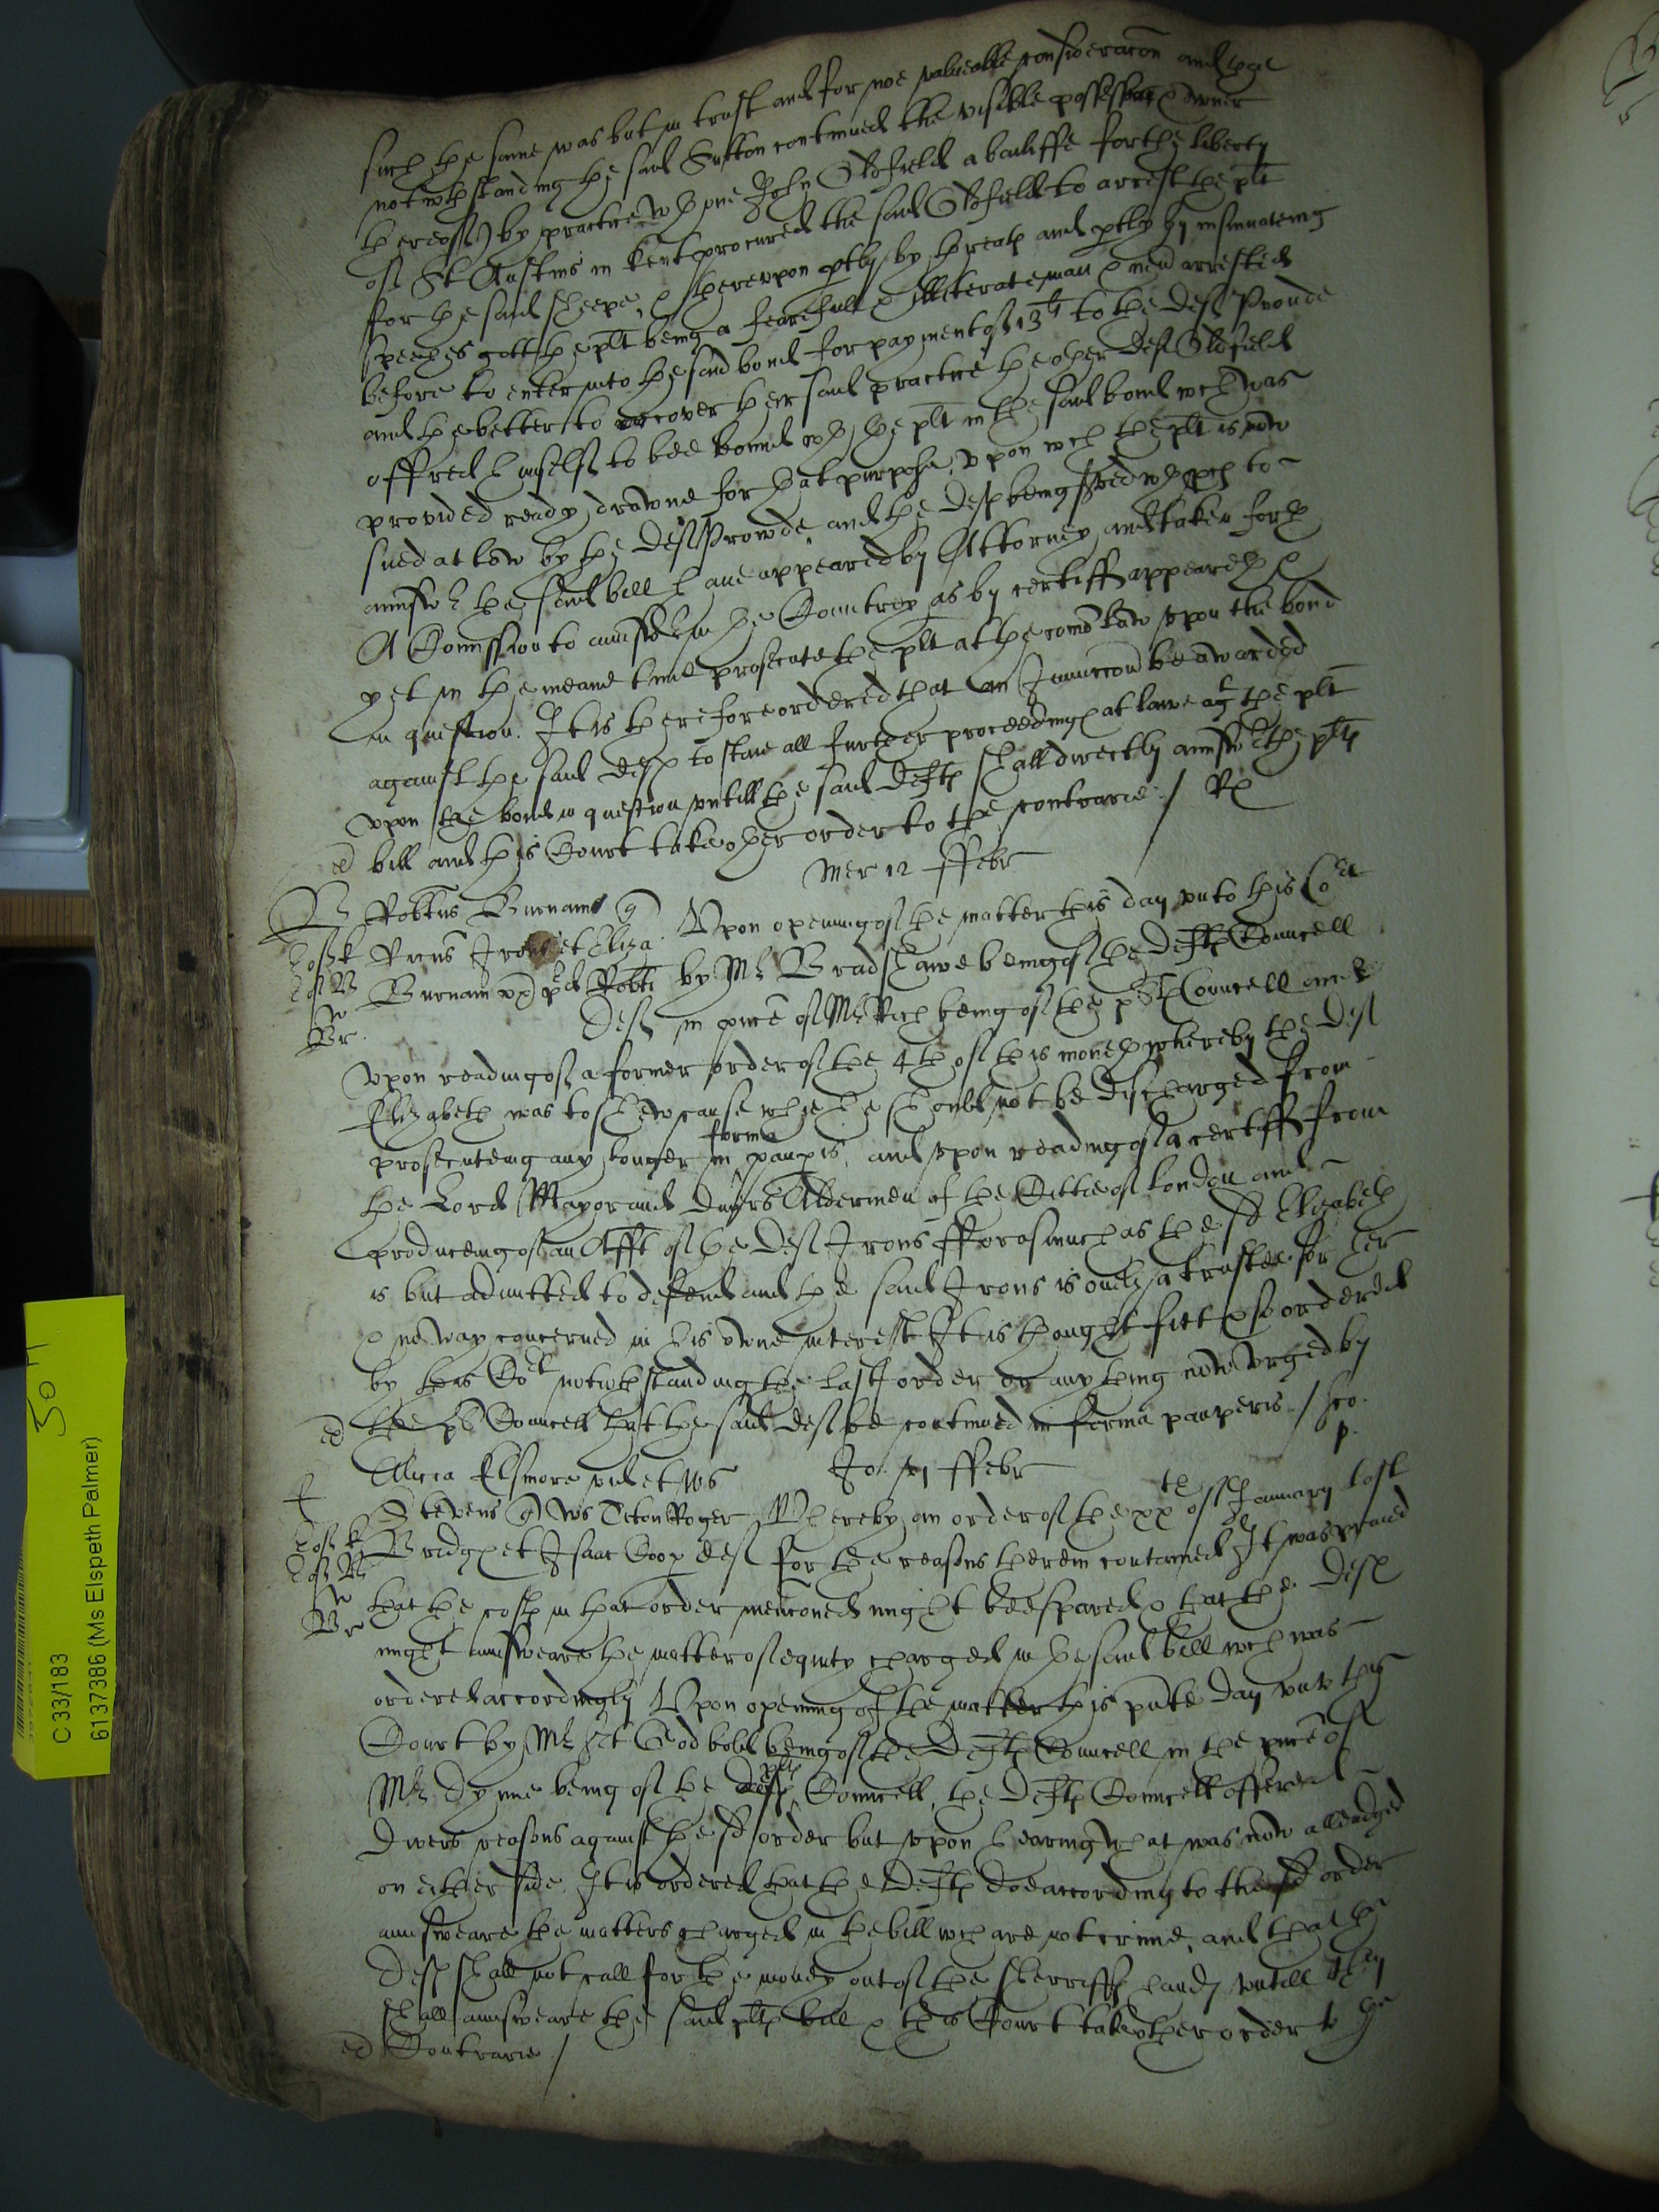 such the same was but in trust and for noe valueable consideracon and
notwthstanding the said Sutton continued the visible possessor & owner
thereof) by practice wth one John Oldfield a bailiffe for the liberty
of St Austins in Kent procured the said Oldfield to arrest the plt
for the said sheepe, & thereupon ptly by threats and ptly by insinuateing
speeches gott the plt being a fearefull & illiterate man & nev arrested
before to enter into the said bond for payment of 13li to the deft Proude
and the better to cover their said practice the other deft Oldfield
offred himselfe to bee bound wth the plt in the said bond wch was
provided ready drawne for that purpose, upon wch the plt is now
sued at law by the deft Prowde, and the defts being served wth pces to
answr the said bill have appeared by Attorney and taken forth
A Comission to answer in the Countrey as by certiff appeareth &
yet in the meane time prosecute the plt at the comon law upon the bond
in question. It is therefore ordered that an Iniunccon be awarded
against the said defts to staie all further proceedings at lawe agt the plt
upon the bond in question untill the said Defts shall directly answer the plts
ed bill and this Court take other order to the contrarie / Rx
Mer 12 ffebr
Robtus Burnam q
Ricus Irons et Eliza Upon opening of the matter this day unto this Cort
Burnam by Mr Bradshawe being of the Defts Councell
Deft in pnce of Mr Rich being of the plts Councell and
upon reading of a former order of the 4th of this moneth whereby the deft
Elizabeth was to shew cause why she should not be discharged from
prosecuteing any longer in forma paupis, and upon reading of a certiff from
the Lord Mayor and divers Aldermen of the Cittie of London and
produceing of an Afft of the deft Irons fforasmuch as the sd Elizabeth
is but admitted to defend and the said Irons is onely a trustee for her
& no way concerned in his owne interest It is thought fitt & so ordered
by this Cort notwthstanding the last order or any thing now urged by
ed the plts Councell that the said deft be continued in forma pauperis /
Jo: ffebr
Alicia Elsmore vid et Ws
Stevens q Ws Teton Roger Whereby an order of the xxth of January last
Bridges et Isaac Coop defts for the reasons therein contained It was prayed
that the costs in that order mencioned might bee spared & that the defts
might answeare the matter of equity charged in the said bill wch was
ordered accordingly Upon opening of the matter this pnte day unto this
Court by Mr Sct Godbold being of the Defts Councell in the pnce of
Mr Dynne being of the plts Councell, the Defts Councell offered
divers reasons against the sd order but upon hearing what was now alleadged
on either side. It is ordered that the Defts doe according to the sd order
answeare the matters charged in the bill wch are not crime, and that the
defts shall not call for the money out of the Sherriffs hands untill they
shall answeare the said plts bill & this Court take other order to the
ed Contrarie /
C 33/183
6137386 (Ms Elspeth Palmer)